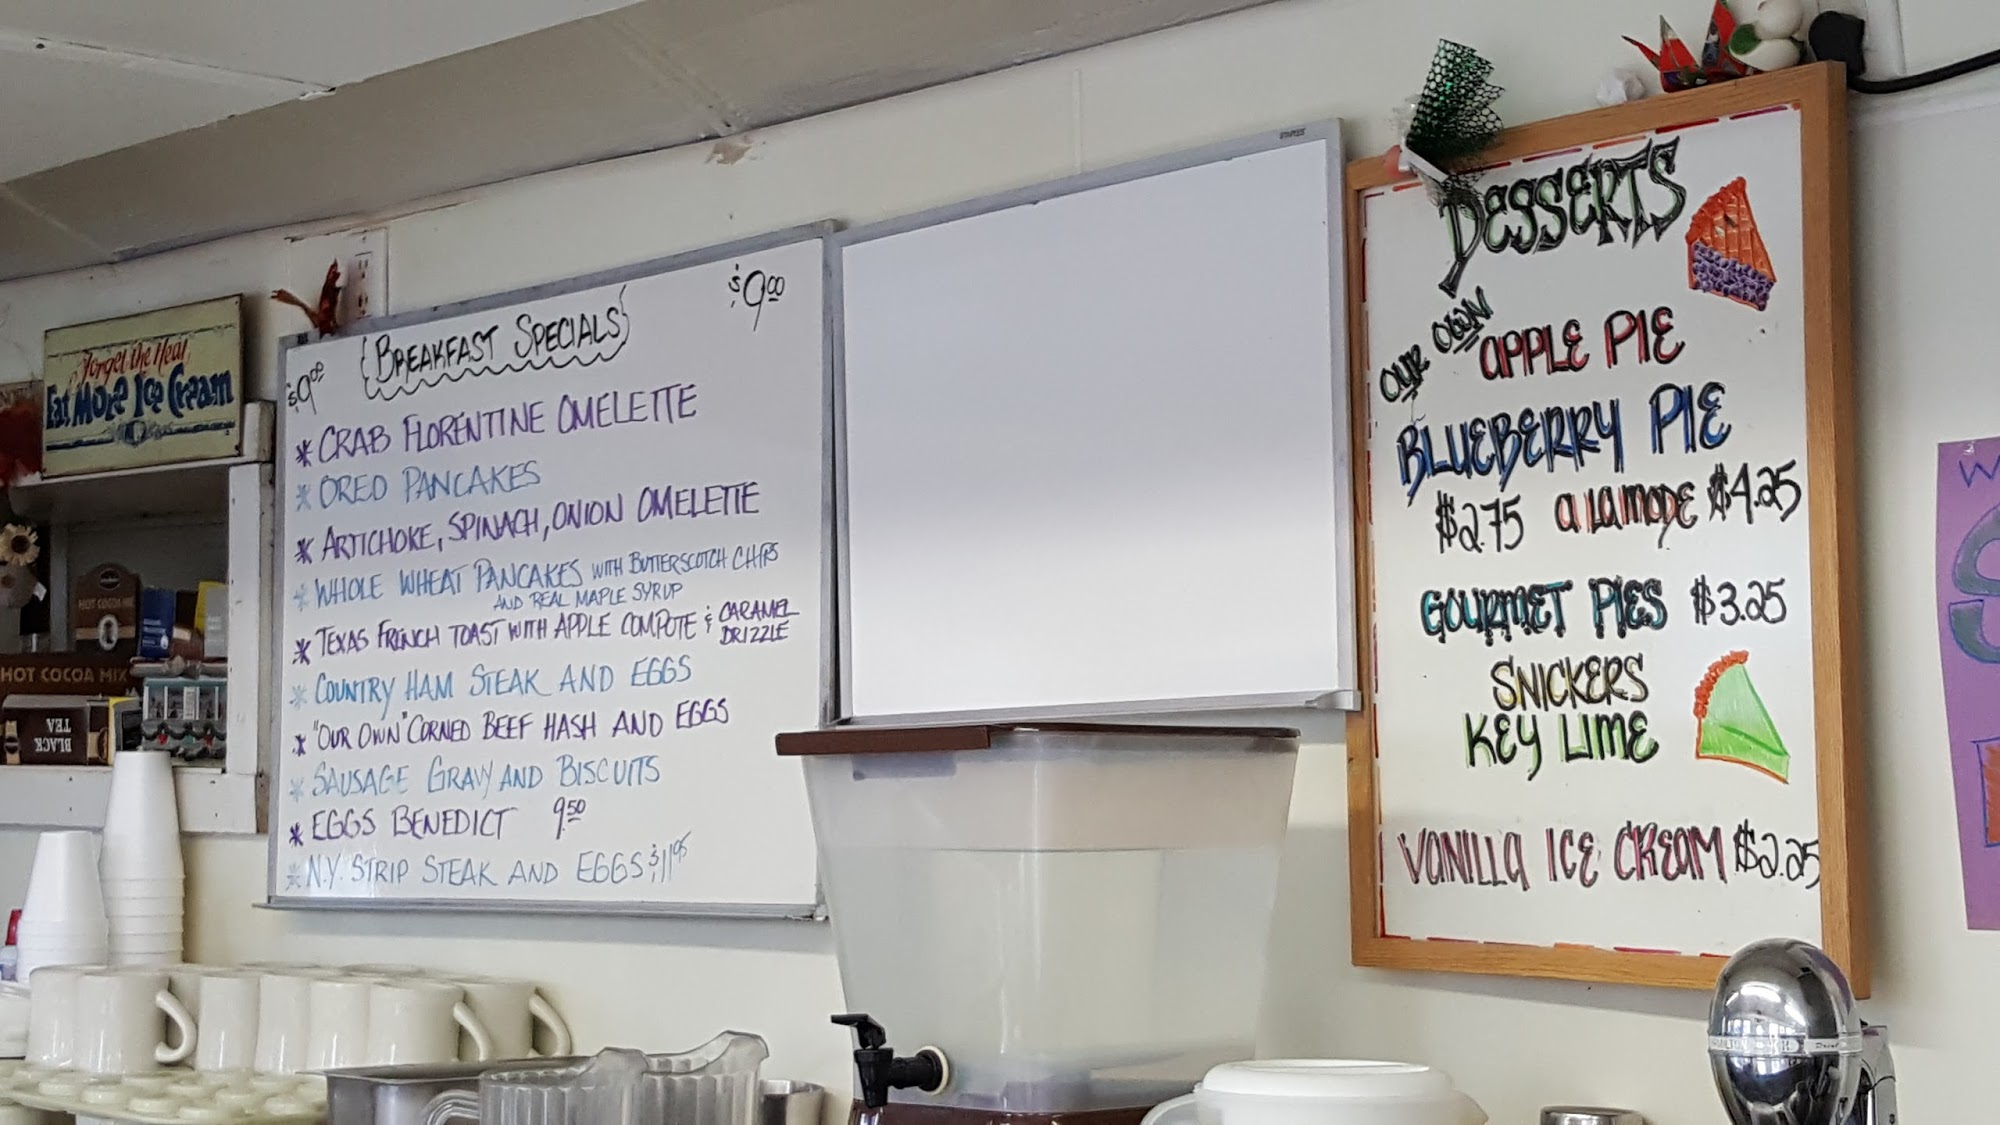 Forget the Heat
Eat More Ice Cream
HOT COCOA MIX
HOT COCOA MIX
BLACK
TEA
$9.00
BREAKFAST SPECIALS
$9.00
* CRAB FLORENTINE OMELETTE
* OREO PANCAKES
* ARTICHOKE, SPINACH, ONION OMELETTE
* WHOLE WHEAT PANCAKES WITH BUTTERSCOTCH CHIPS
AND REAL MAPLE SYRUP
* TEXAS FRENCH TOAST WITH APPLE COMPOTE & CARAMEL
DRIZZLE
* COUNTRY HAM STEAK AND EGGS
* "OUR OWN" CORNED BEEF HASH AND EGGS
* SAUSAGE GRAVY AND BISCUITS
* EGGS BENEDICT 9.50
* N.Y. STRIP STEAK AND EGGS $11.95
STAPLES
DESSERTS
OUR OWN
APPLE PIE
BLUEBERRY PIE
$2.75 a LA MODE $4.25
GOURMET PIES $3.25
SNICKERS
KEY LIME
VANILLA ICE CREAM $2.25
HAMILTON BEACH